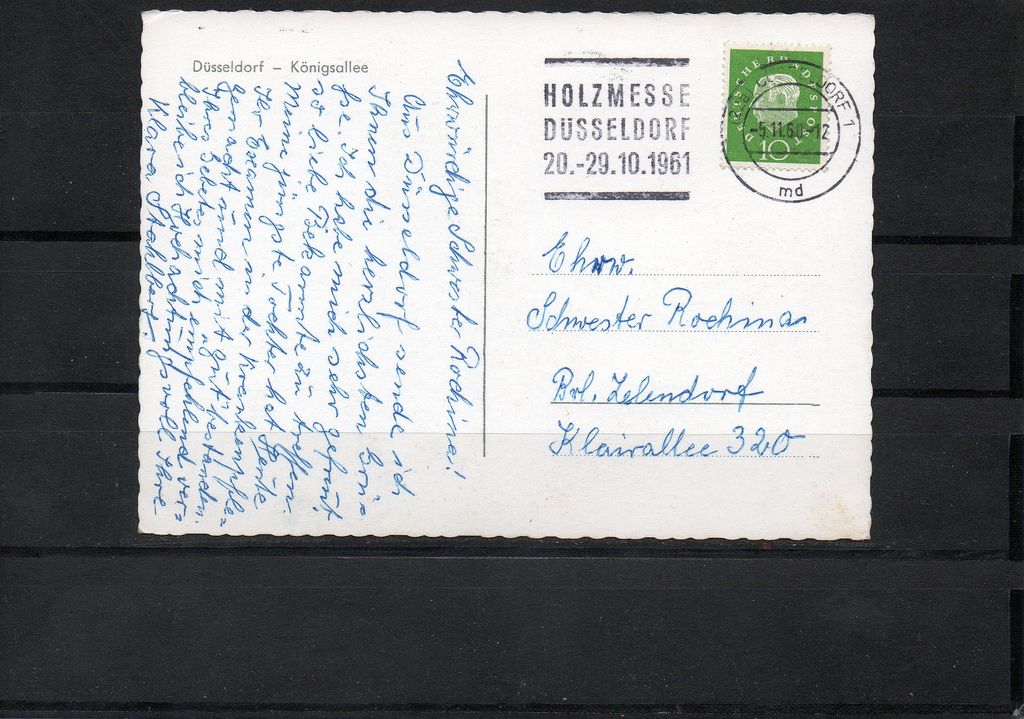 Düsseldorf – Königsallee
Ehrwürdige Schwester Rochina!
Aus Düsseldorf sende ich
Ihnen die herzlichsten Grü=
ße. Ich habe mich sehr gefreut
so liebe Bekannte zu treffen.
Meine jüngste Tochter hat Heute
Ihr Examen in der Krankenpfle=
ge gemacht und mit "gut" bestanden.
Ihres Gebetes mich empfehlend ver=
bleibe ich Hochachtungsvoll Ihre
Klara Stahlberg.
HOLZMESSE
DÜSSELDORF
20.-29.10.1961
DEUTSCHE BUNDESPOST
10
DORF 1
-5.11.60-12
md
Ehrw.
Schwester Rochina
Brl. Zelendorf
Klairallee 320